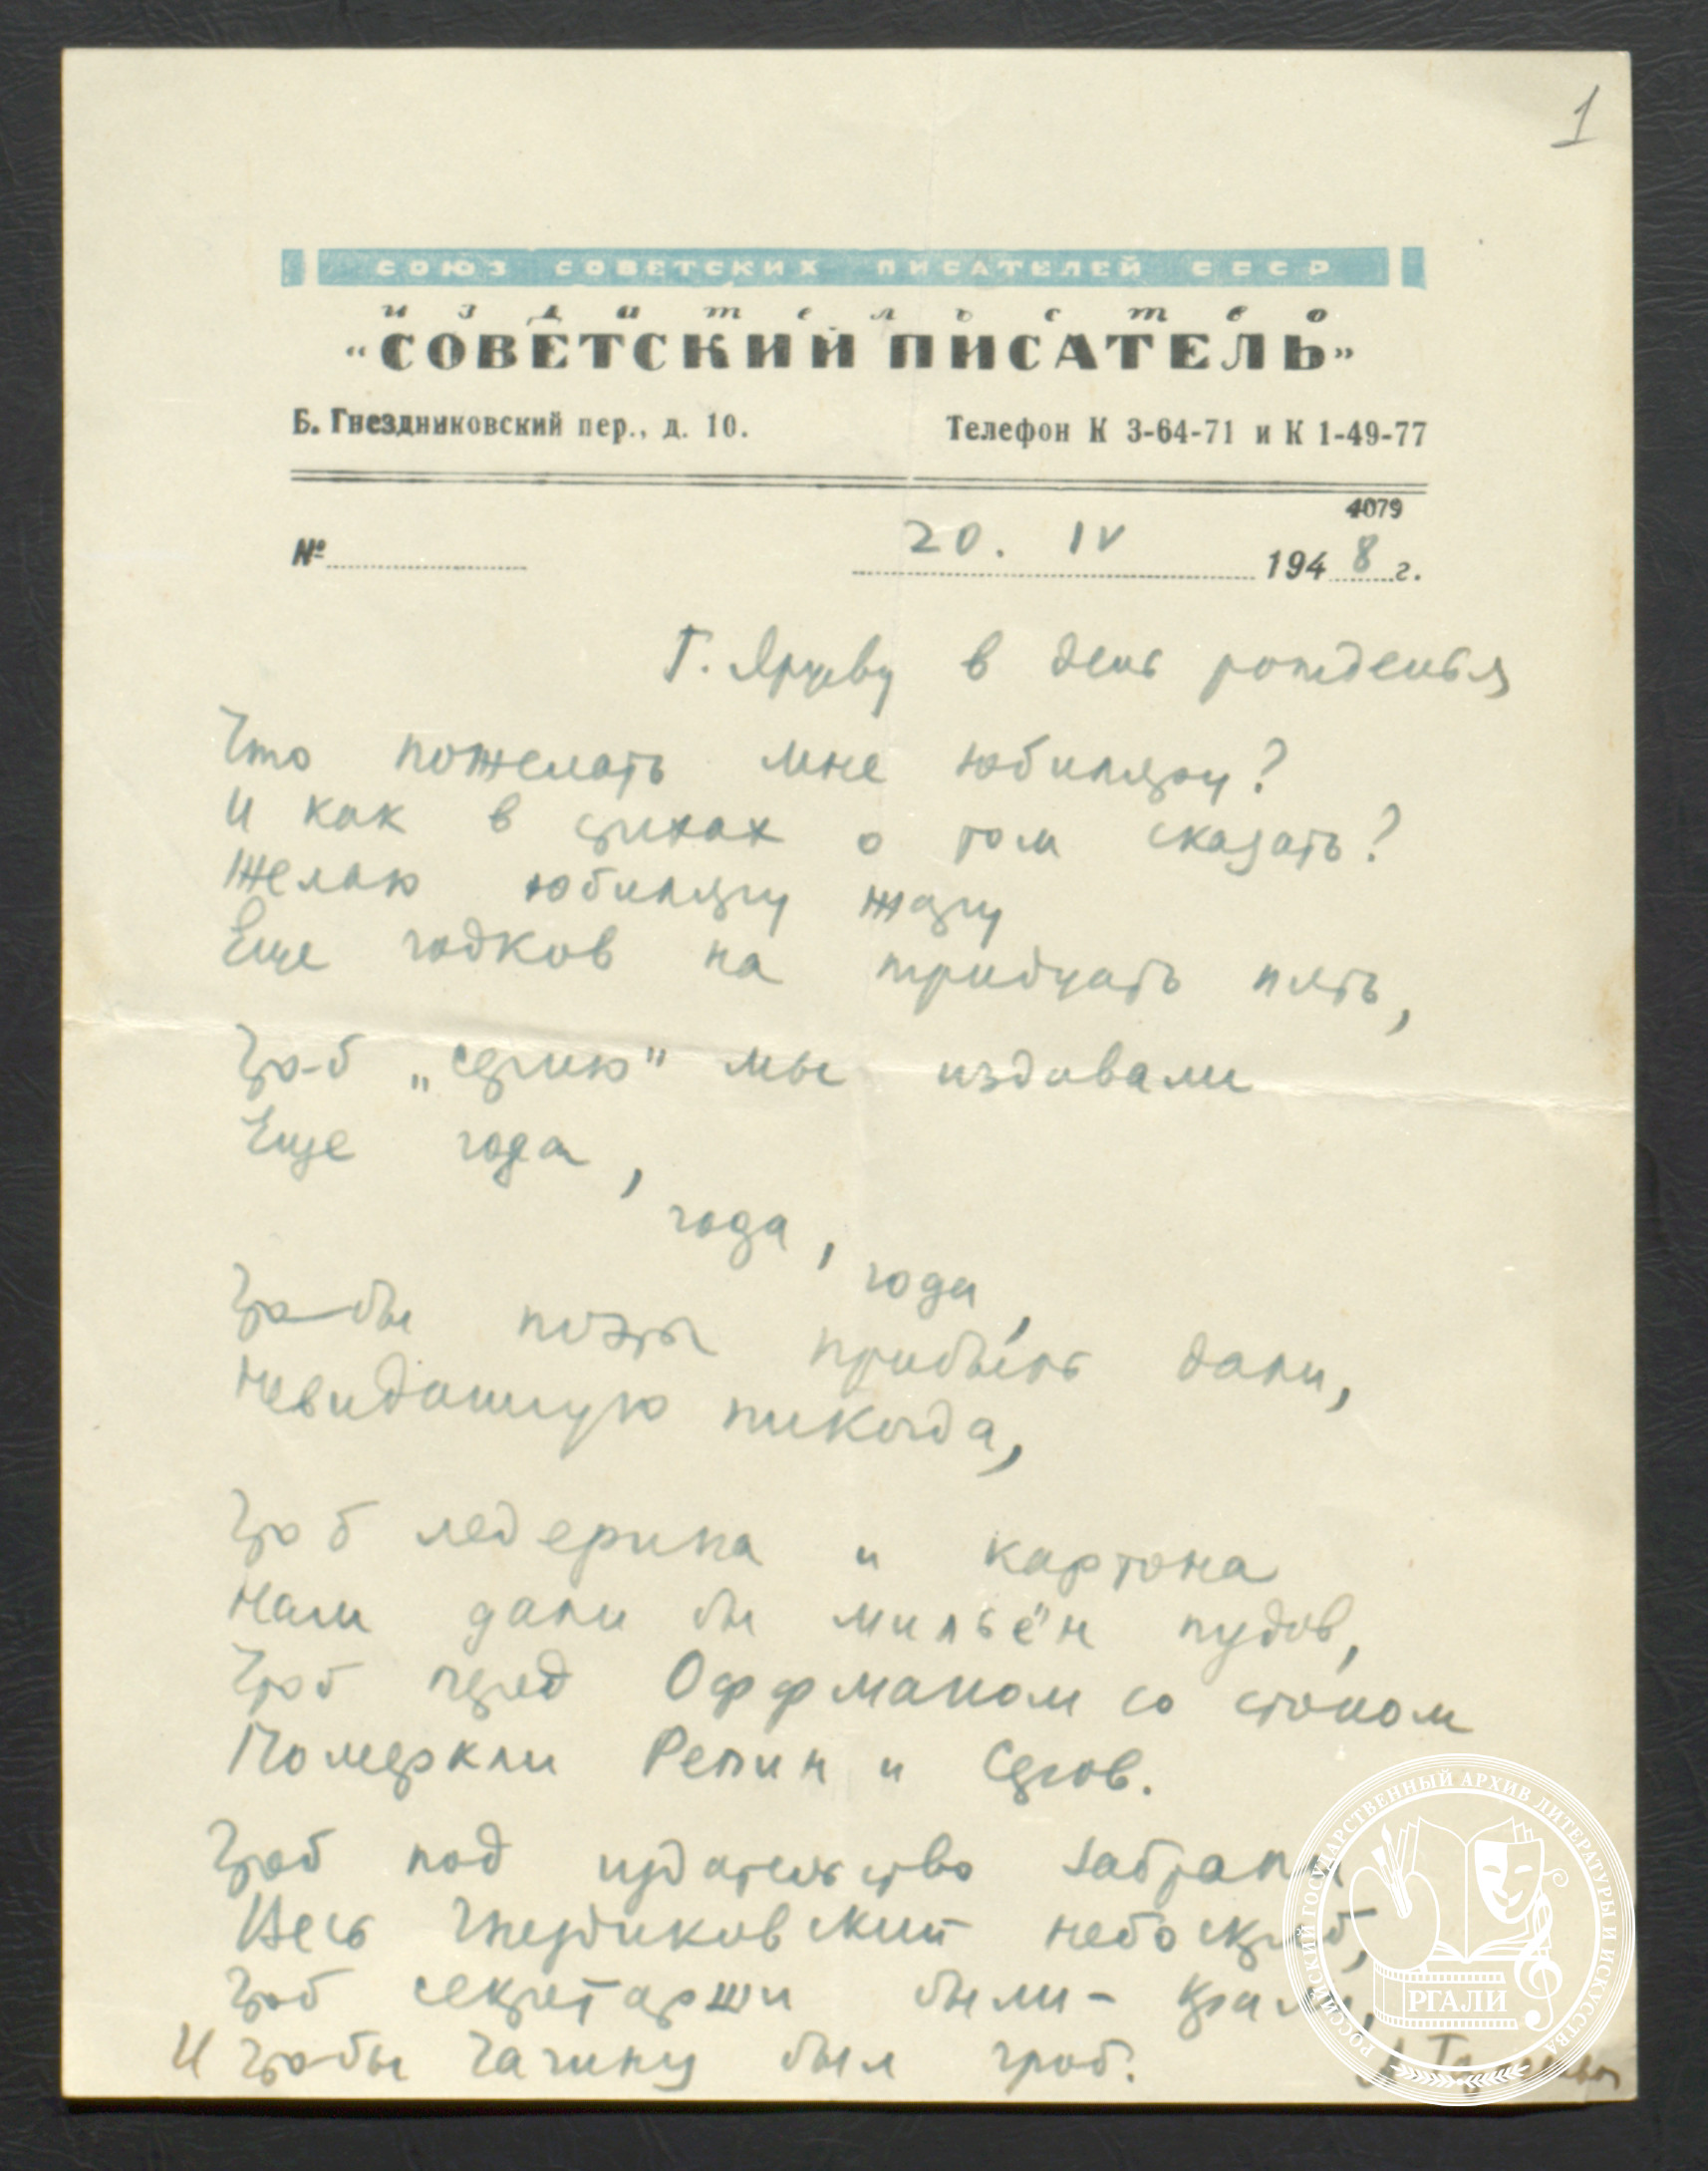 1
СОЮЗ СОВЕТСКИХ ПИСАТЕЛЕЙ СССР
издательство
"СОВЕТСКИЙ ПИСАТЕЛЬ"
Б. Гнездниковский пер., д. 10.
Телефон К 3-64-71 и К 1-49-77
4079
№
20. IV 1948 г.
Г. Ярцеву в день рожденья
Что пожелать мне юбиляру?
И как в стихах о том сказать?
Желаю юбиляру жару
Еще годков на тридцать пять,
Что-б „серию" мы издавали
Еще года,
года,
года,
Что-бы поэты прибыль дали,
Невиданную никогда,
Что б ледерина и картона
Нам дали бы мильён пудов,
Чтоб перед Оффманом со стоном
Померкли Репин и Серов.
Чтоб под издательство забрали
Весь Гнездиковский небоскреб,
Чтоб секретарши были - крали,
И что-бы Чагину был гроб.
РОССИЙСКИЙ ГОСУДАРСТВЕННЫЙ АРХИВ ЛИТЕРАТУРЫ И ИСКУССТВА
РГАЛИ